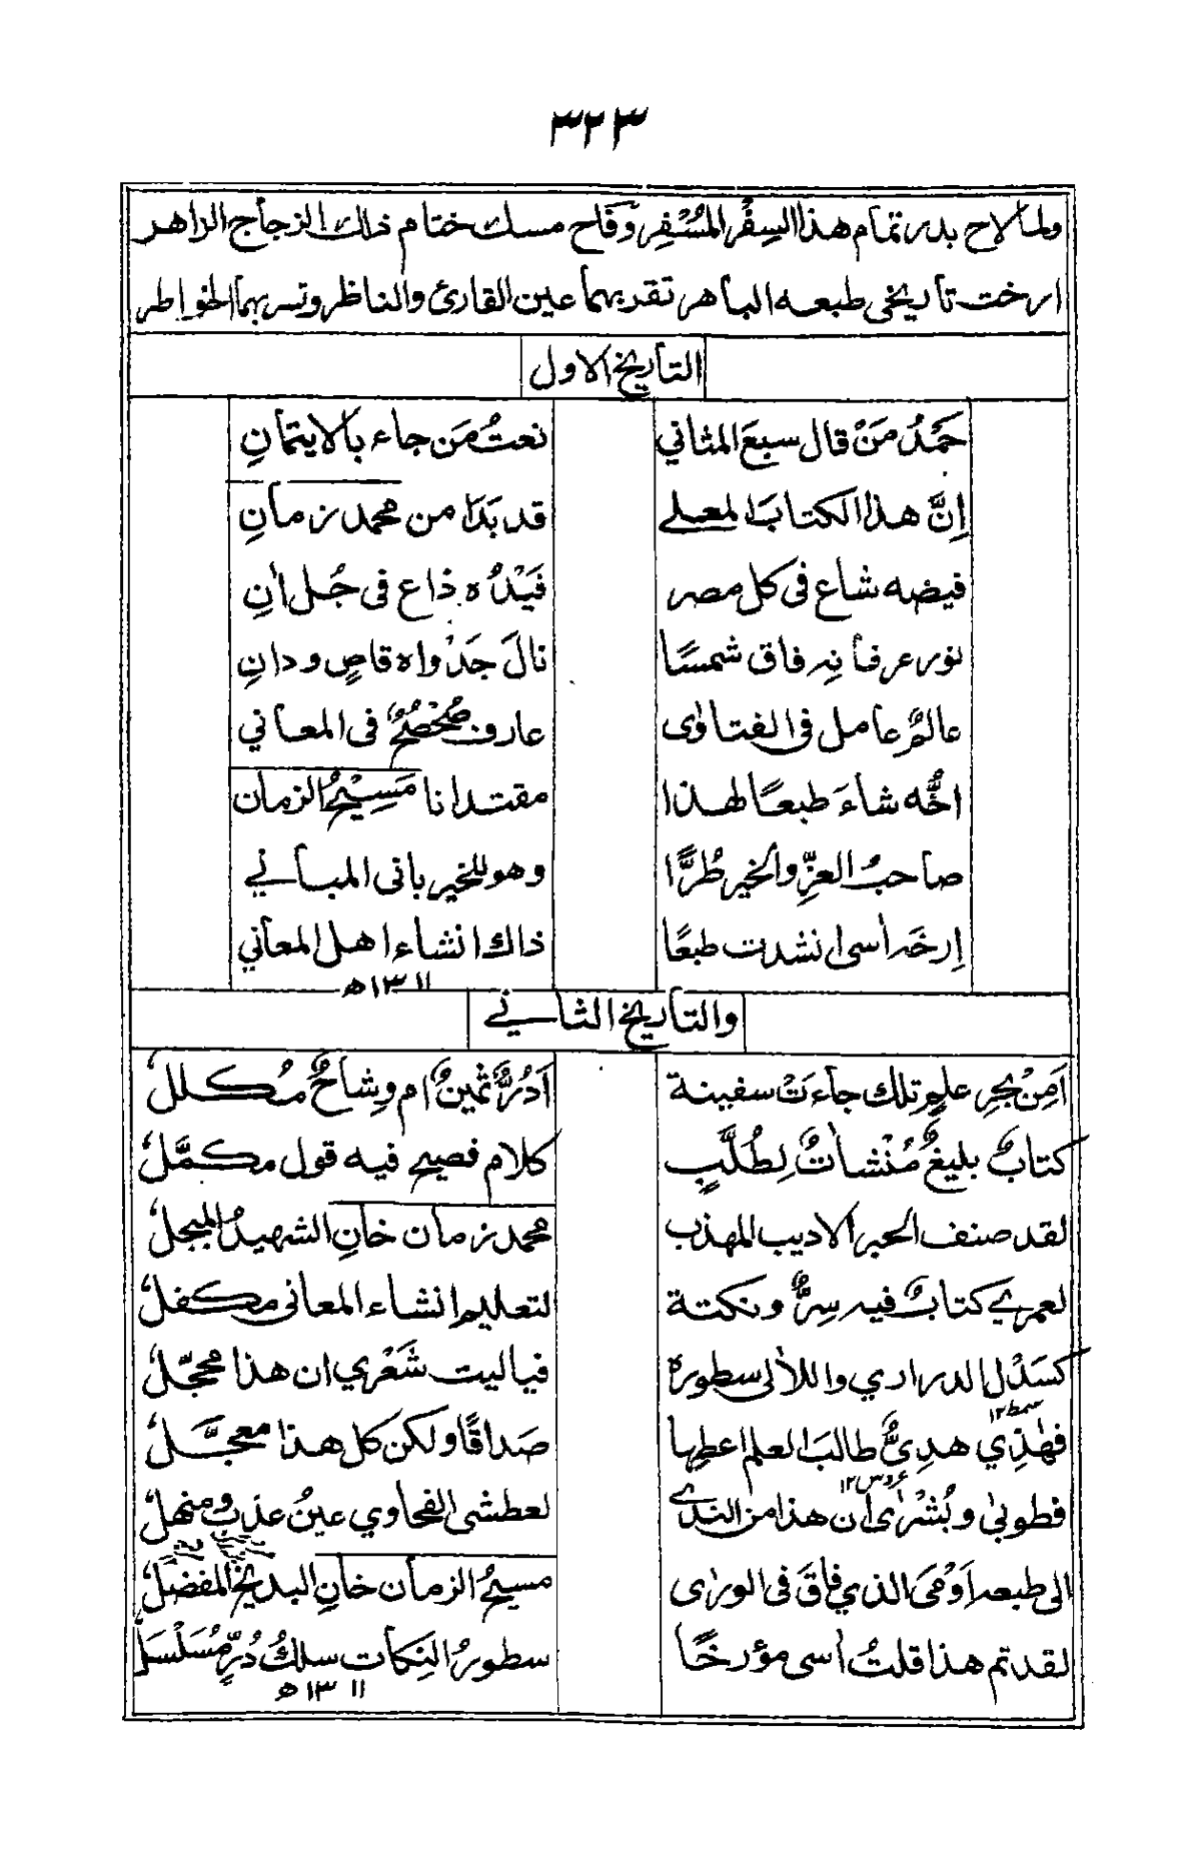 ٣٢٣
ولما لاح بدر تمام هذا السِفْر المُسْفِر وَفَاح مسك ختام ذاك الزجاج الزاهر
ارخت تأريخى طبعه الباهر تقر بهما عين القارئ والناظر وتسر بهما الخواطر
التأريخ الاول
حَمْدُ مَنْ قال سبعَ المثاني نعتُ مَن جاء بالايتمانِ
اِنَّ هذا الكتابَ المعلے قد بَدَا من محمد زمانِ
فيضه شاع فى كل مصر فَيْدُه ذاع فى جُل اٰنِ
نور عرفانِه فاق شمسًا نالَ جَدْواه قاصٍ ودانِ
عالمٌ عامل فى الفتاوٰى عارف صَحْصُحٌ فى المعاني
اخُّه شاءَ طبعًا لهذا مقتدانا مَسِيْحُ الزمان
صاحبُ العزِّ والخير طُرًّا وهو للخير بانى المباني
اِرخَه اٰسى انشدت طبعًا ذاك انشاء اهل المعاني
١٣١١ه
والتأريخ الثاني
اَمِنْ بحرِ علمٍ تلك جاءَتْ سفينة اَدُرٌّ ثمينٌ ام وِشاحٌ مُكلل
كتابٌ بليغٌ مُنْشاتٌ لِطُلَّبٍ كلام فصيح فيه قول مكمَّلُ
لقد صنف الحبر الاديب المهذب محمد زمان خانِ الشهيدُ المبجلُ
لعمري كتابٌ فيه سِرٌّ ونكتة لتعليم انشاء المعانى مكفلُ
كسَدْل الدراري واللآلى سطوره فياليت شَعْري ان هذا محجّلُ
سمط١٢
فهٰذِي هدِىٌّ طالبَ العلم اعطِها صَداقًا ولكن كل هذا معجَّلُ
عروس١٢
فطوبىٰ وبُشْرٰى اَن هذا من الندے لعطشى الفحاوي عينُ عذبٍ ومنهلُ
الى طبعه اَوْمَى الذي فاقَ فى الورٰى مسيحُ الزمان خانِ البديخ المفضلُ
لقد تم هذا قلتُ اٰسى مؤرخًا سطورُ النِكات سلكُ دُرٍّ مُسَلْسَلُ
١٣١١ه